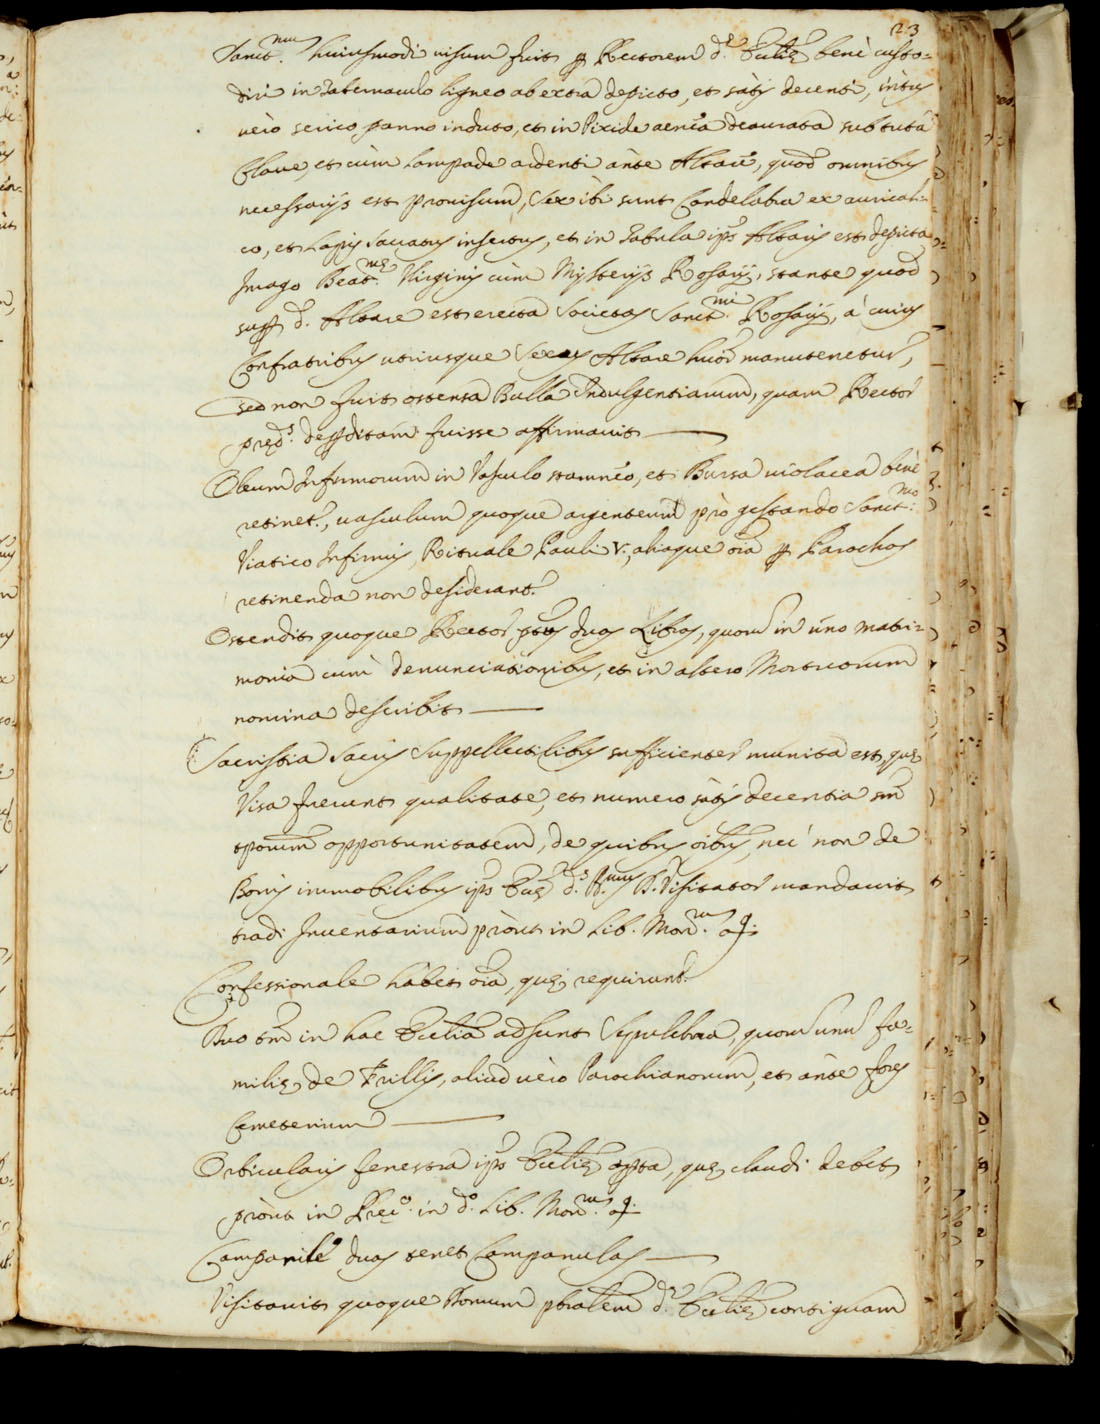 23
Sanct.mum huiusmodi uisum fuit p Rectorem d.e Ecclię benè custo-
diri in Tabernaculo ligneo ab extra depicto, et satis decenti, intus
uerò serico panno induto, et in Pixide aenea deaurata sub tuta
Claue, et cùm Lampade ardenti ante Altare, quod omnibus
necessarijs est prouisum, Sex ibi sunt Candelabra ex aurical-
co, et Lapis Sacratus insertus, et in Tabula ips Altaris est depicta
Imago Beat.mę Virginis cùm Mysterijs Rosarij, stante quod
sup d.o Altare est erecta Societas Sanct.mi Rosarij, à cuius
Confratribus utriusque Sexus Altare huōi manutenetur,
sed non fuit ostensa Bulla Indulgentiarum, quam Rector
pręd.s depditam fuisse affirmauit
Oleum Infirmorum in Vasculo stamneo, et Bursa uiolacea benè
retinet.r, uasculum quoque argenteum prò gestando Sanct.mo
Viatico Infirmis, Rituale Pauli V., aliaque oīa p Parochos
retinenda non desiderant.r
Ostendit quoque Rector ptus duos Libros, quorum in uno matri-
monia cum denunciationibus, et in altero Mortuorum
nomina describit
Sacristia Sacris Suppellectilibus sufficienter munita est, quę
Visa fuerunt qualitate, et numero satis decentia scđm
tporum opportunitatem, de quibus oībus, nec non de
Bonis immobilibus ips Eccę d.s R.mus P. Visitator mandauit
tradi Inuentarium proùt in Lib. Mon.m
Confessionale habet oīa, quę requirunt.r
Duo tm̄ in hac Ecclia adsunt Sepulchra, quorum unum fa-
milię de Trillis, aliud uèro Parochianorum, et ante fores
Cemeterium
Orbicularis fenestra ips Ecclię apta, quę claudi debet
proùt in Prec.o in d.o Lib. Mon.m
Campanile duas tenet Campanulas
Visitauit quoque Domum pbralem d.e Ecclię contiguam